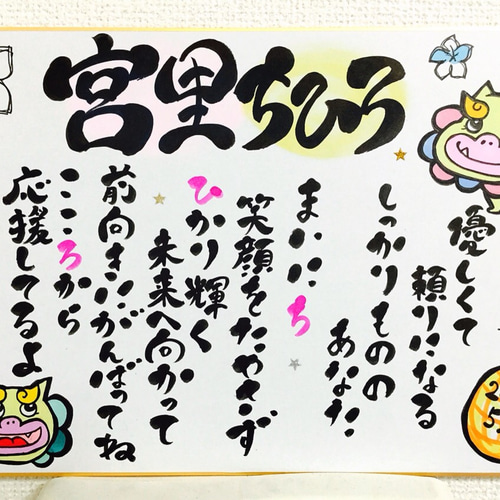 宮里ちひろ
優しくて
頼りになる
しっかりものの
あなた
まいにち
笑顔をたやさず
ひかり輝く
未来へ向かって
前向きにがんばってね
こころから
応援してるよ